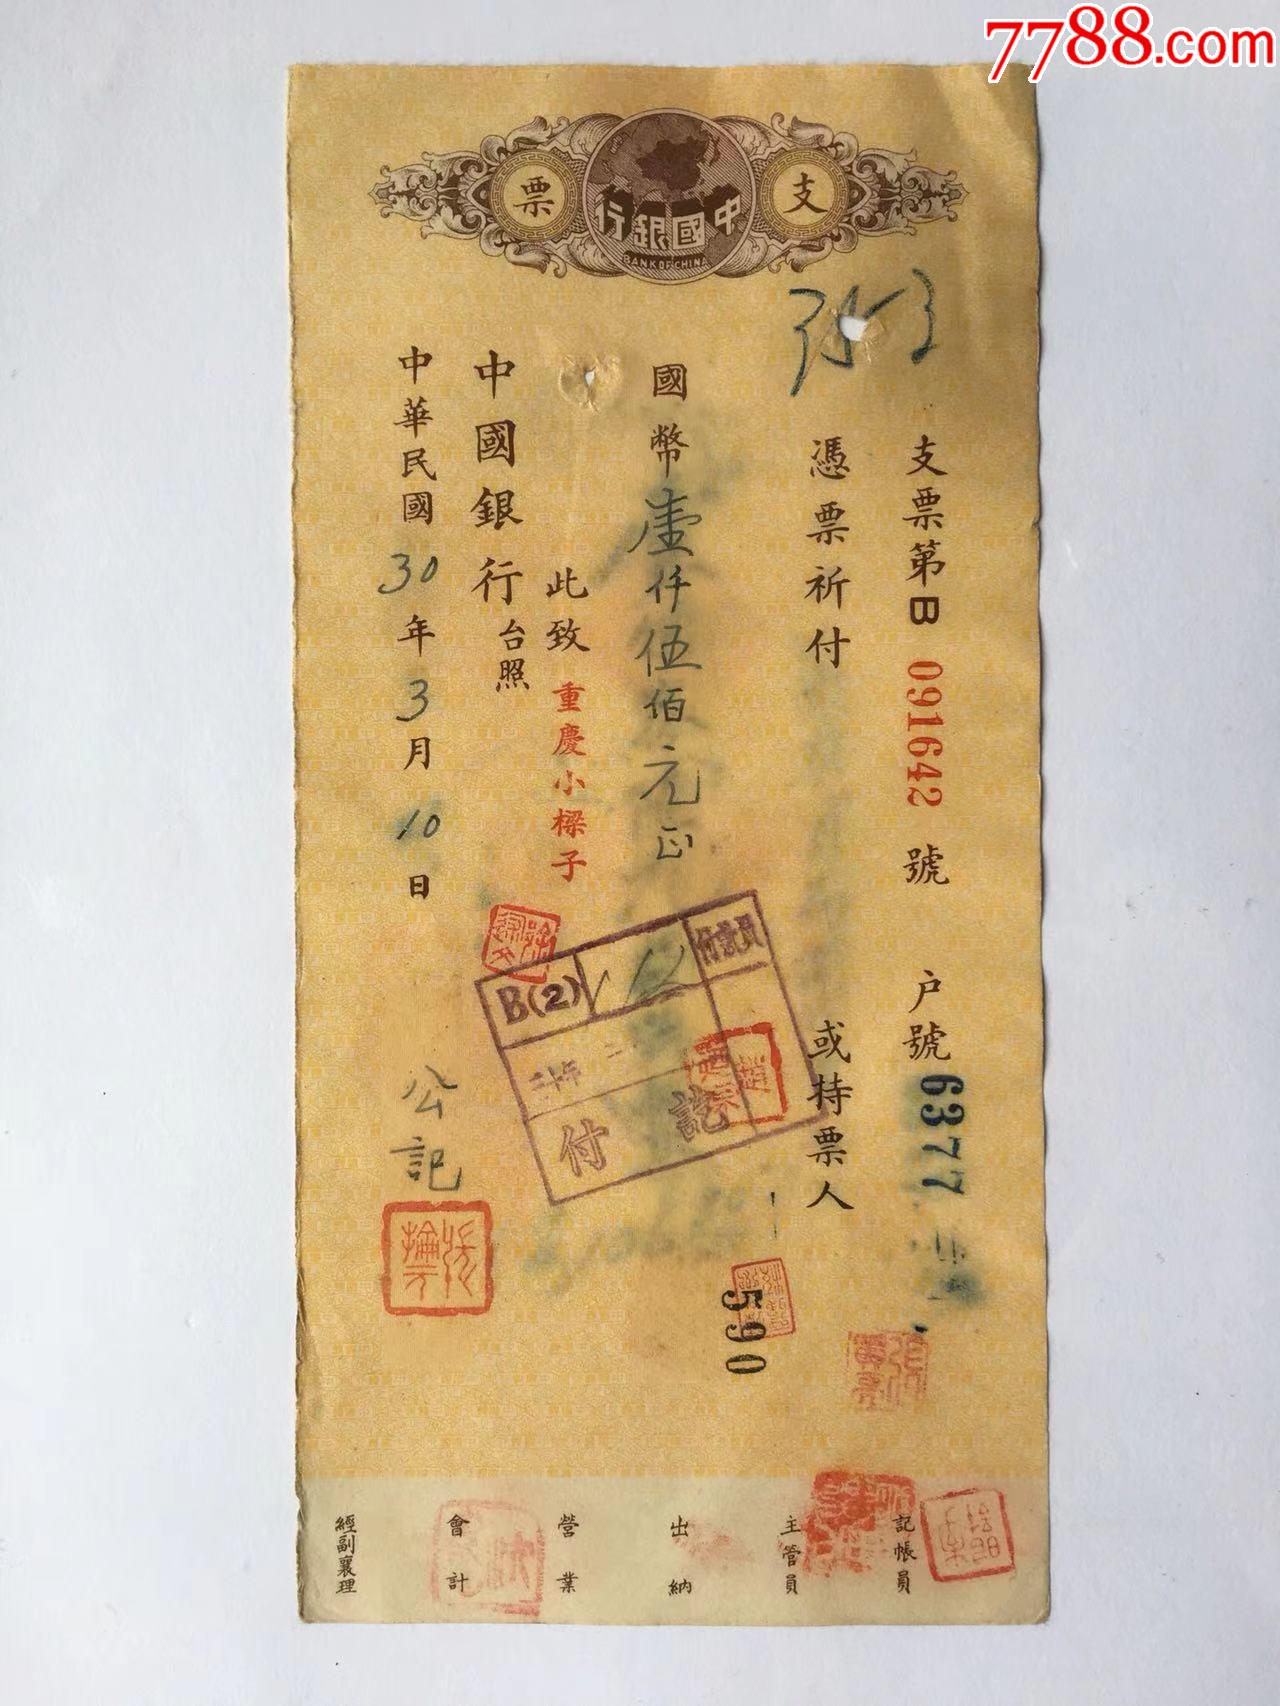 7788.com
支票
中國銀行
BANK OF CHINA
支票第B 091642 號 户號 6377
憑票祈付 或持票人
國幣壹仟伍佰元正
此致 重慶小樑子
中國銀行台照
中華民國30年3月10日
公記
B(2)
付訖
590
記帳員
主管員
出納
營業
會計
經副襄理